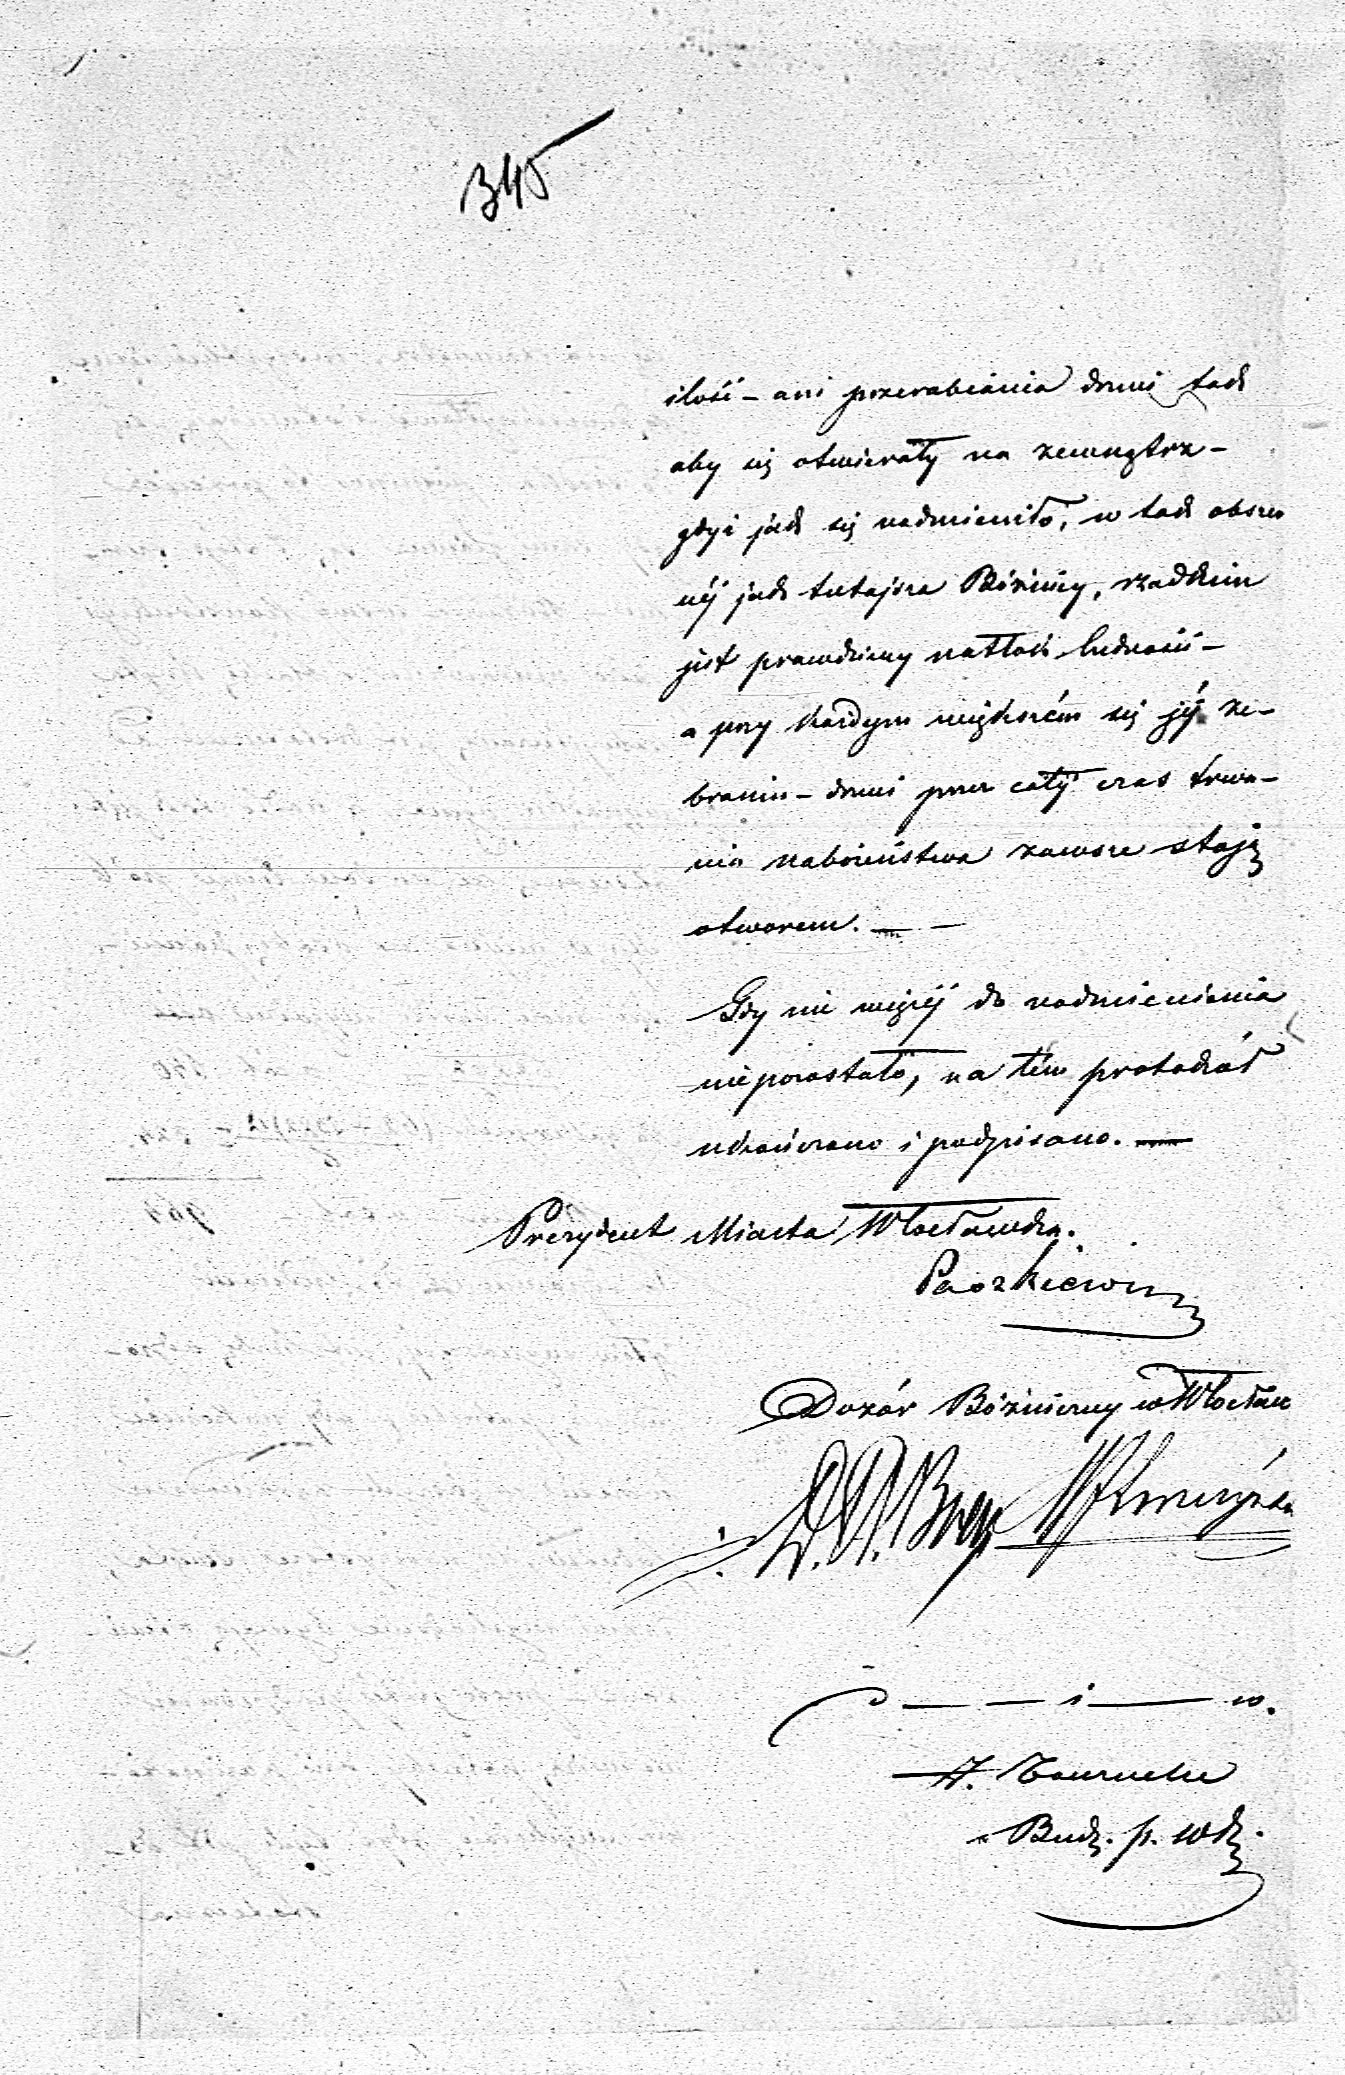 345
ilość – ani przerabiania drzwi tak
aby się otwierały na zewnątrz –
gdyż jak się nadmieniło, w tak obszer
néj jak tutejsza Bóżnicy, rzadkim
jest prawdziwy natłok ludności –
a przy każdym większém się jéj ze–
braniu – drzwi przez cały czas trwa–
nia nabożeństwa zawsze stoją
otworem. — —
Gdy nic więcéj do nadmienienia
niepozostało, na tém protokół
ukończono i podpisano. —
Prezydent Miasta Włocławka.
Paszkiewicz
Dozór Bóżniczny w Włocław
— — i — w.
Bud. p. Wł.